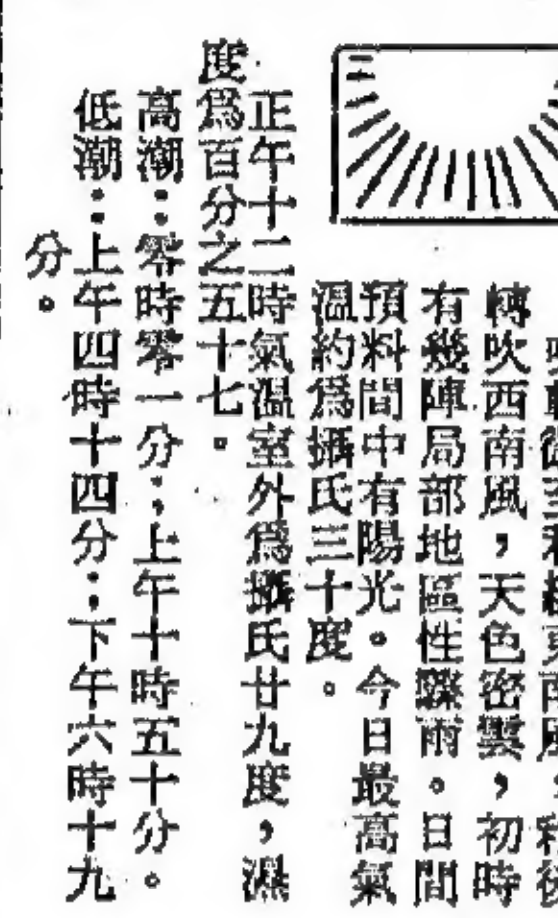 吹輕微至和緩東南風，稍後
轉吹西南風，天色密雲，初時
有幾陣局部地區性驟雨。日間
預料間中有陽光。今日最高氣
溫約爲攝氏三十度。
正午十二時氣溫室外爲攝氏廿九度，濕
度爲百分之五十七。
高潮：零時零一分；上午十時五十分。
低潮：上午四時十四分；下午六時十九
分。